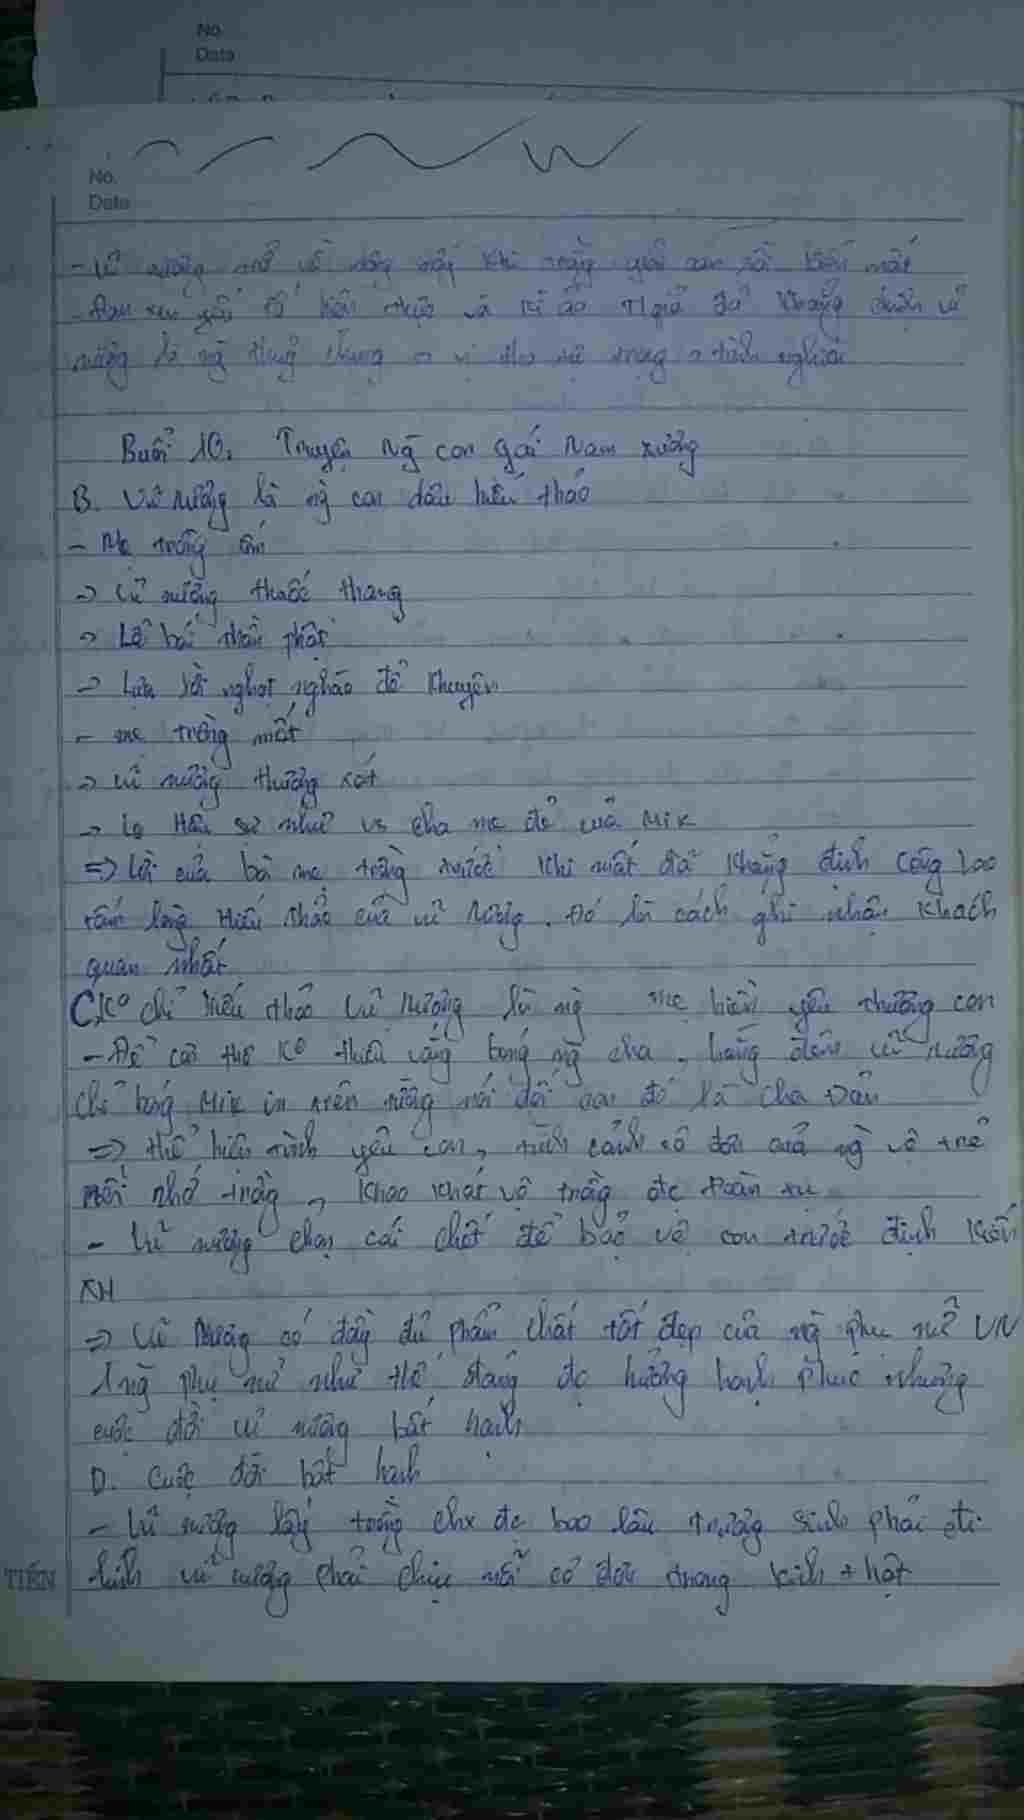 No.
Date
No.
Date
- Vũ nương trở về dòng sông khi tràng giải oan rồi biến mất
- Đan xen yếu tố hiện thực và kì ảo Tgiả đã khẳng định vũ
nương là ng thuỷ chung tình nghĩa
Buổi 10. Truyện Ng con gái Nam xương
B. Vũ nương là ng con dâu hiếu thảo
- Mẹ trồng ốm
-> Vũ nương thuốc thang
-> Lễ bái thần phật
-> Lựa lời nghọt nghào để khuyên
- mẹ trồng mất
-> vũ nương thương xót
-> lo Hậu sự như vs cha mẹ đẻ của Mik
=> lời của bà mẹ trồng trước khi mất đã khẳng định công lao
tấm lòng Hiếu thảo của vũ Nương. Đó là cách ghi nhận khách
quan nhất
C. Ko chỉ hiếu thảo Vũ Nương là ng mẹ hiền yêu thương con
- Để con thơ ko thiếu vắng bóng ng cha, hàng đêm vũ nương
chỉ bóng Mik in trên tường nói dối con đó là cha Đản
=> thể hiện tình yêu con, tình cảnh cô đơn của ng vợ trẻ
nỗi nhớ tràng, khao khát vợ trồng đc đoàn tụ
- Vũ nương chọn cái chết để bảo vệ con trước định kiến
XH
=> Vũ Nương có đầy đủ phẩm chất tốt đẹp của ng phụ nữ VN
1 ng phụ nữ như thế đáng đc hưởng hạnh phúc nhưng
cuộc đời vũ nương bất hạnh
D. Cuộc đời bất hạnh
- Vũ nương lấy trồng chx đc bao lâu trương sinh phải đi
lính vũ nương phải chịu nỗi cô đơn
TIẾN